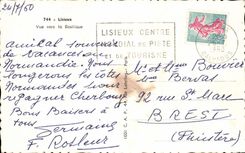 24/7/60
744 - Lisieux
Vue vers la Basilique
LISIEUX CENTRE
MONDIAL DE PIETE
ET DE TOURISME
Amical souvenir
de vacances en
Normandie. Nous
longerons les côtes
Normandes pour
regagner Cherbourg
Bons Baisers à
tous.
Germaine
F.
Mr et Mme Bouvier
92 rue St Marc
BREST
(Finistère)